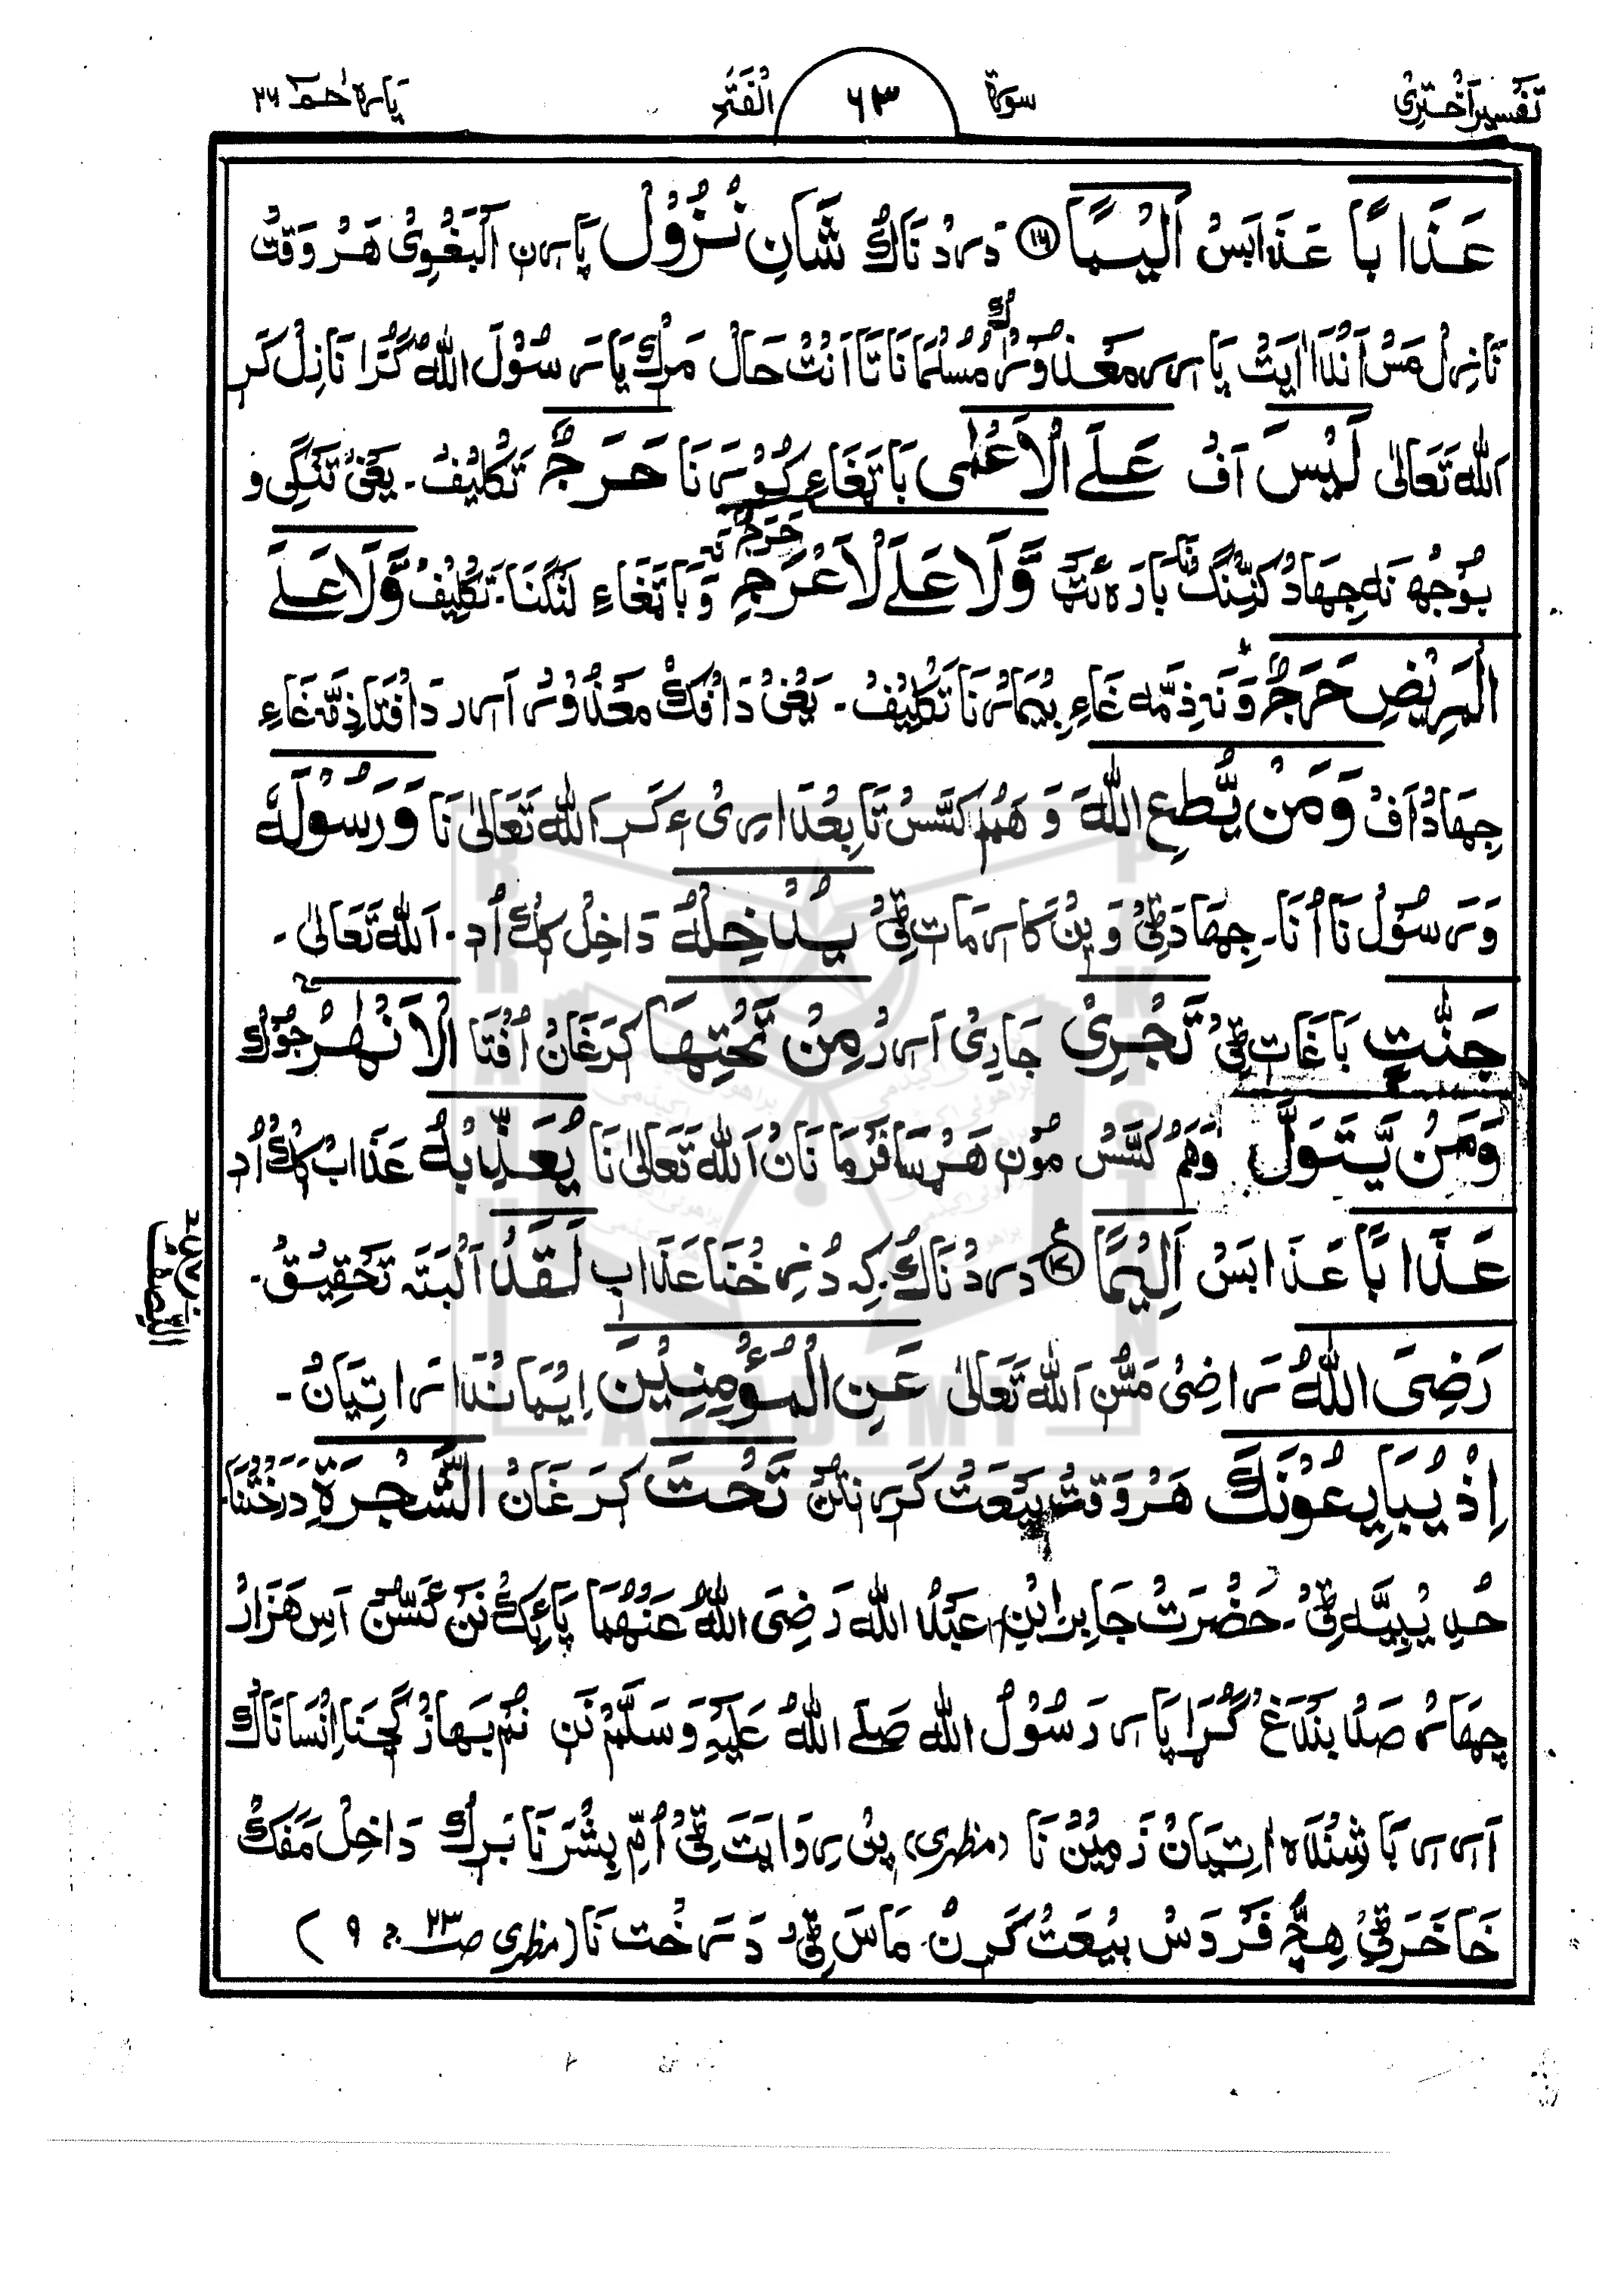 تفسیر اختری سورۃ ٦٣ الفتح پاره حٰمٓ ٢٦
عَذَابًا عَذَابَسْ اَلِیْمًا ﴿١٦﴾ دَردْنَاكْ شَانِ نُزُوْل پَارِن اَلْبَغْوِیْ هَرْوَقتْ
نَازِل مَسْ اَنْدَا اٰیَتْ پَارِی مَعْذُوْرْ مُسْلِمَانَاتَا اَنْتْ حَالْ مَرِكْ یَا رَسُوْلَ اللّٰهْ گُڑَا نَازِلْ كَرِ
اَللّٰه تَعَالٰی لَیْسَ اَفْ عَلَی الْاَعْمٰی بَاتِغَاءِ كُوْرَنَا حَرَجٌ تَكْلِیْفْ۔ یَعْنِیْ تَنْگِی و
بُوْجھ نَه جِهَادْ كَنِّنْگ نَا بَارَه ئَٹ وَّلَا عَلَی لْاَعْرَجِ حَرَجٌ نَه وَ بَاتِغَاءِ لَنْگنَا۔ تَكْلِیْفْ وَّلَا عَلَی
الْمَرِیْضِ حَرَجٌ وَ نَه ذِمَّه غَاءِ بِیْمَارْنَا تَكْلِیْفْ۔ یَعْنِیْ دَافْكْ مَعْذُوْرْ اَرِر دَافْتَا ذِمَّه غَاءِ
جِهَادْ اَفْ وَمَنْ یُّطِعِ اللّٰهَ وَ هَمْ كَسَّسْ تَابِعْدَارِیْ ءِ كَرِ اَللّٰه تَعَالٰی نَا وَرَسُوْلَهٗ
وَ رَسُوْلْ نَا اُنَا۔ جِهَادَ ٹِیْ وَ پِنْ كَارِمَاتِ ٹِیْ یُدْخِلْهُ دَاخِلْ كِكْ اُدِ۔ اَللّٰه تَعَالٰی۔
جَنّٰتٍ بَاغَاتِ ٹِیْ تَجْرِیْ جَارِیْ اَرِرْ مِنْ تَحْتِهَا كِرَغَانْ اُفْتَا الْاَنْهٰرُ جُوْكْ
وَمَنْ یَّتَوَلَّ وَهَمْ كَسَّسْ مُوْن هَرْسَا فَرْمَانَانْ اَللّٰه تَعَالٰی نَا یُعَذِّبْهُ عَذَابْ كِكْ اُدِ
عَذَابًا عَذَابَسْ اَلِیْمًا ﴿١٧﴾ دَردْنَاكْ۔ كِه دُنِر خُنَا عَذَابِ لَقَدْ اَلْبَتَّه تَحْقِیْقْ۔
رَضِیَ اللّٰهُ رَاضِیْ مَسُّن اَللّٰه تَعَالٰی عَنِ الْمُؤْمِنِیْنَ اِیْمَانْدَارَاتِیَانْ۔
اِذْ یُبَایِعُوْنَكَ هَرْوَقتْ بَیْعَتْ كَرِر نَاتُن تَحْتَ كِرَغَانْ الشَّجَرَةِ دَرَخْتْنَا۔
حُدَیْبِیَّه ٹِیْ۔ حَضْرَتْ جَابِرْ اِبْنِ عَبْدُ اللّٰه رَضِیَ اللّٰهُ عَنْهُمَا پَائِكْ نَن كَسَّسُن اَسِ هَزَارْ
چِهَارْ صَدْ بَنْدَاغْ گُڑَا پَارِ رَسُوْلُ اللّٰه صَلَّی اللّٰهُ عَلَیْهِ وَسَلَّمْ نَنِ نُمْ بِهَازْ گِچَنَا اِنْسَانَاكْ
اَرِرِی بَاشِنْدَه اتِیَانْ زَمِیْنَ نَا (مظهری) پِن رِوَایَتَ ٹِیْ اُمِّ بِشْرَنَا بَرِكْ دَاخِلْ مَفَكْ
خَاخَرَ ٹِیْ هِچْ فَرْدَسْ بَیْعَتْ كَرِنْ مَاسَ ٹِیْ دَرَخْتَ نَا (مظهری صـ٢٣ ج ٩)